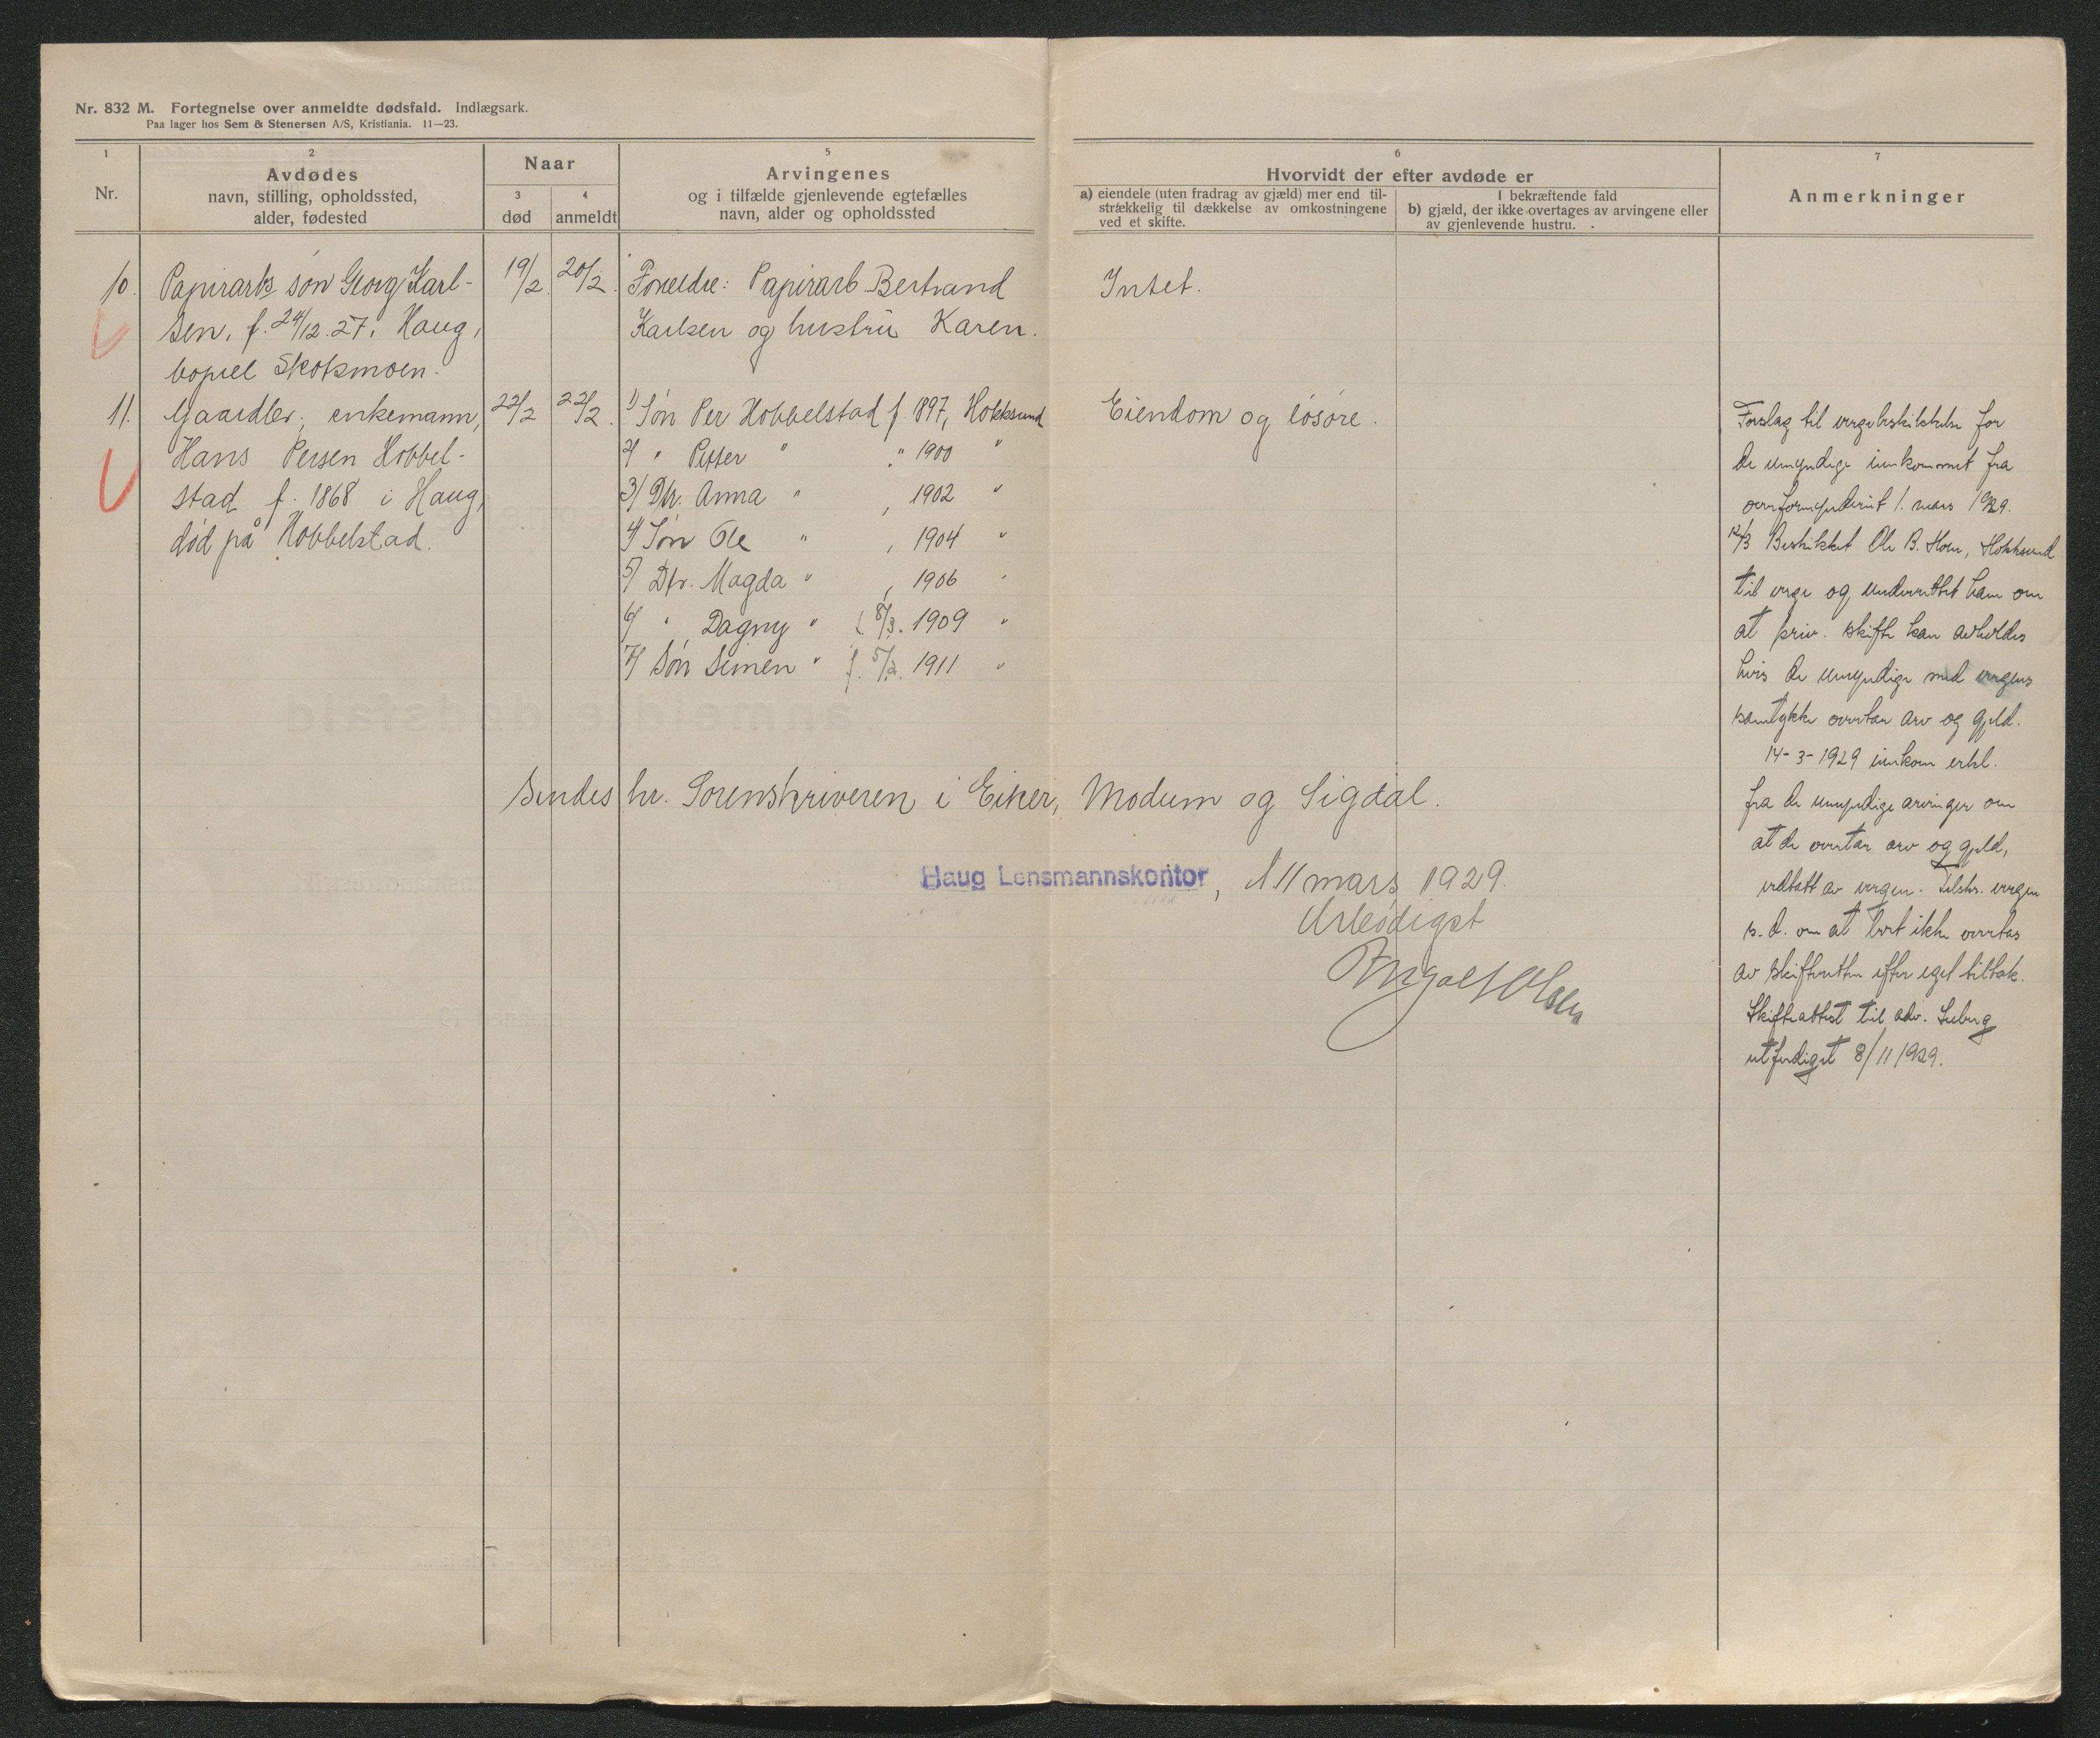 Nr. 832 M. Fortegnelse over anmeldte dødsfald. Indlægsark.
Paa lager hos Sem & Stenersen A/S, Kristiania. 11—23.
1
Nr.
2
Avdødes
navn, stilling, opholdssted,
alder, fødested
Naar
3
død
4
anmeldt
5
Arvingenes
og i tilfælde gjenlevende egtefælles
navn, alder og opholdssted
6
Hvorvidt der efter avdøde er
a) eiendele (uten fradrag av gjæld) mer end til-
strækkelig til dækkelse av omkostningene
ved et skifte.
I bekræftende fald
b) gjæld, der ikke overtages av arvingene eller
av gjenlevende hustru.
7
Anmerkninger
10.
Papirarbs søn Georg Karl-
sen, f. 24/12.27. Haug,
bopæl Skotsmoen.
19/2.
20/2.
Foreldre: Papirarb Bertrand
Karlsen og hustru Karen.
Intet.
11.
Gaardbr. enkemann,
Hans Persen Hobbel-
stad f. 1868 i Haug,
död på Hobbelstad.
22/2
22/2.
1/ Søn Per Hobbelstad f. 1897, Hokksund
2/ " Petter " " 1900 "
3/ Dtr. Anna " , 1902 "
4/ Søn Ole " , 1904 "
5/ Dtr. Magda " , 1906 "
6/ " Dagny " f. 8/3. 1909 "
7/ Søn Simen " f. 5/2. 1911 "
Eiendom og lösöre.
Forslag til vergebeskikkelse for
de umyndige innkommet fra
overformynderiet 1. mars 1929.
12/3 Beskikket Ole B. Hoen, Hokksund
til verge og underrettet ham om
at priv. skifte kan avholdes
hvis de umyndige med vergens
samtykke overtar arv og gjeld.
14-3-1929 innkom erkl.
fra de umyndige arvinger om
at de overtar arv og gjeld,
vedtatt av vergen. Tilskr. vergen
s. d. om at boet ikke overtas
av skifteretten efter eget tiltak.
Skifteattest til adv.
utferdiget 8/11 1929.
Sendes hr. Sorenskriveren i Eiker, Modum og Sigdal.
Haug Lensmannskontor, d 11 mars 1929.
Ærbødigst